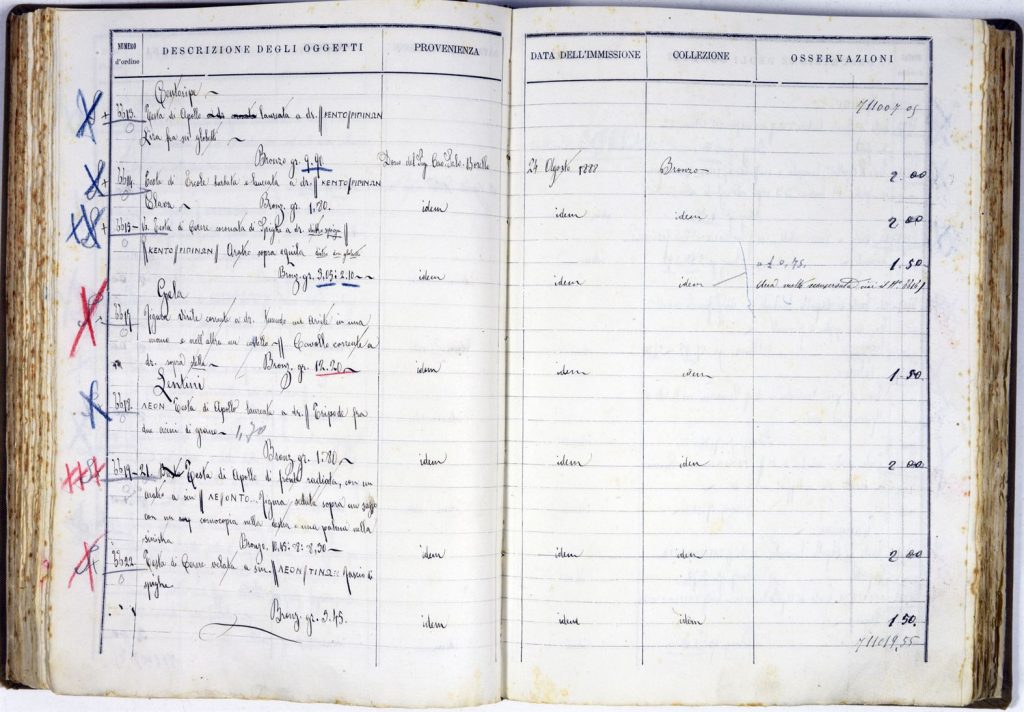 NUMERO
d'ordine
DESCRIZIONE DEGLI OGGETTI
PROVENIENZA
DATA DELL'IMMISSIONE
COLLEZIONE
OSSERVAZIONI
711007.05
Centoripe
6613. Testa di Apollo laureata a dr. || KENTO/ΡΙΠΙΝΩΝ
Lira fra sei globetti
Bronzo gr. 9.90 Dono del Sig. Cav. 24 Agosto 1888 Bronzo 2.00
6614. Testa di Ercole barbata e laureata a dr. || KENTO/ΡΙΠΙΝΩΝ
Clava Bronz. gr. 1.80. idem idem idem 2.00
6615-16. Testa di Cerere coronata di spighe a dr. ||
|| KENTO/ΡΙΠΙΝΩΝ/ Aratro sopra
Bronz. gr. 3.15: 2.10 idem idem idem a £ 0,75. 1.50
Gela
6617. Figura virile corrente a dr. in una
mano e nell'altra un || Cavallo corrente a
dr. sopra stella Bronz. gr. 12.20 idem idem idem 1.50
Lentini
6618. ΛΕΟΝ Testa di Apollo laureata a dr. || Tripode fra
due acini di grano 1,70
Bronz. gr. 1.80 idem idem idem 2.00
6619-21. Testa di Apollo di fronte radiata, con un
aratro a sin || ΛΕ/ΟΝΤΟ. Figura seduta sopra un sasso
con un cornocopia nella destra e una palma nella
sinistra Bronz. 10.15: 8: 8,30 idem idem idem 2.00
6622. Testa di Cerere velata a sin. || ΛΕΟΝ/ΤΙΝΩΝ Fascio di
spighe
Bronz. gr. 3.45. idem idem idem 1.50.
711019,55